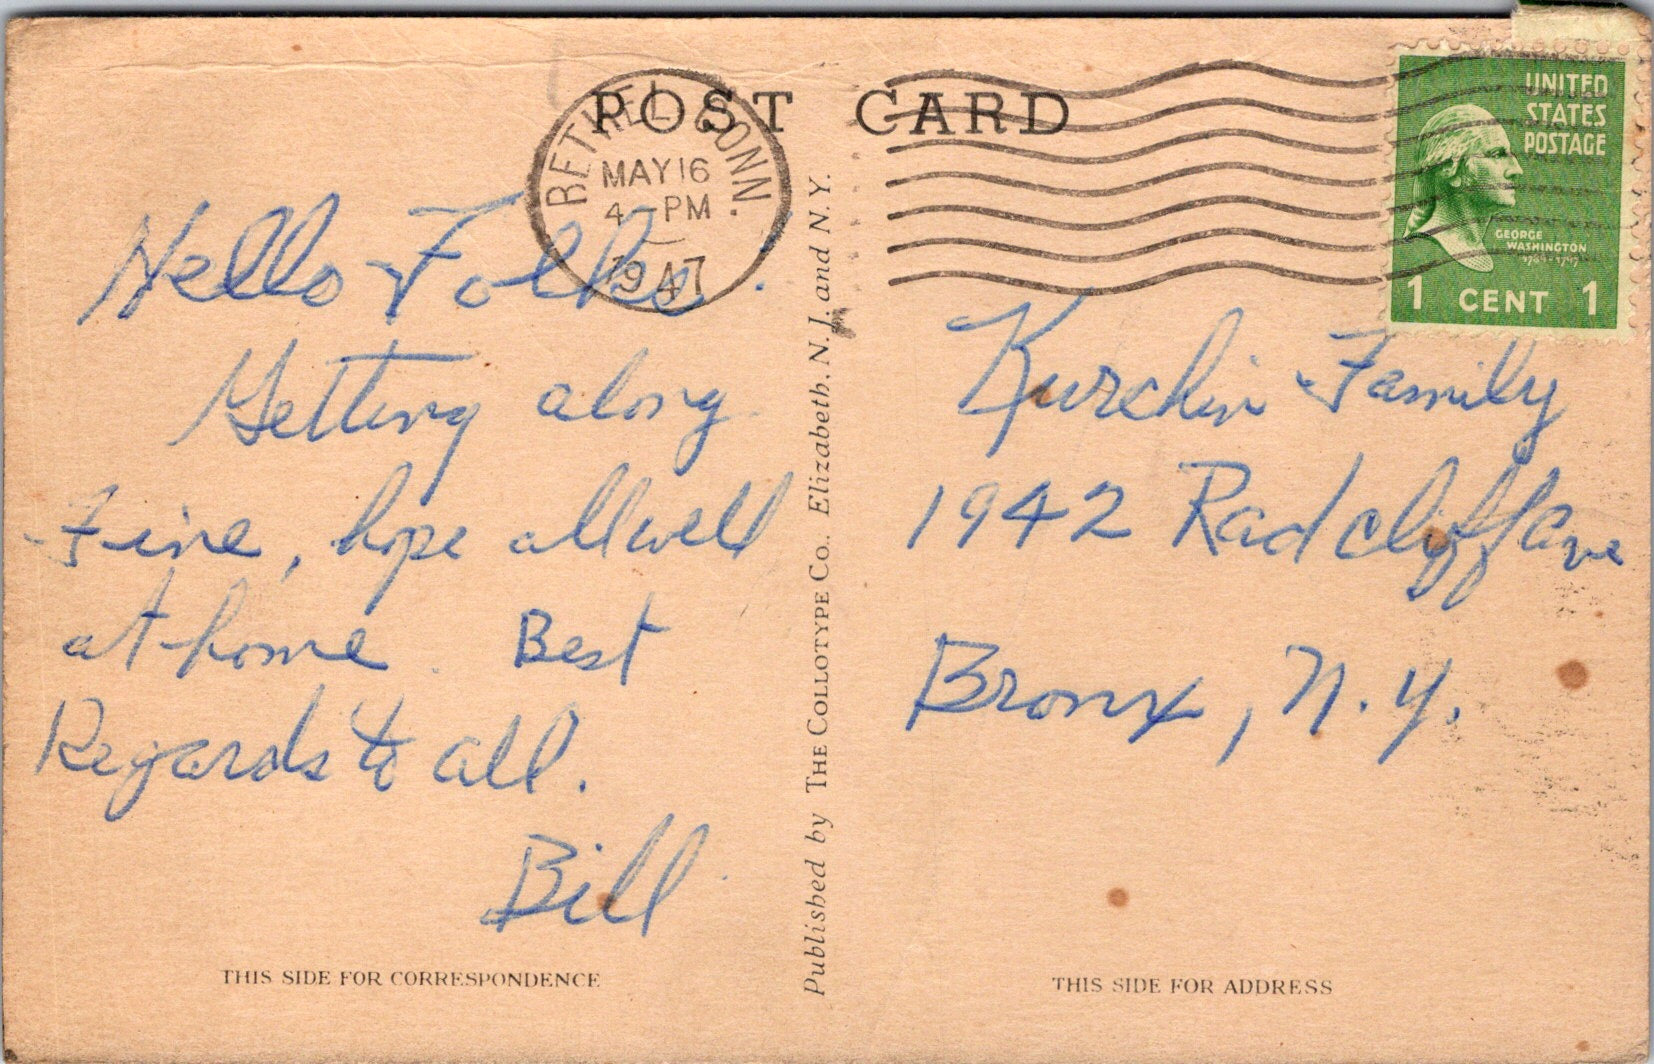 POST CARD
BETHEL CONN.
MAY 16
4 - PM
1947
UNITED
STATES
POSTAGE
GEORGE
WASHINGTON
1789-1797
1 CENT 1
Hello Folks.
Getting along
Fine, hope all well
at home. Best
Regards to all.
Bill
Published by THE COLLOTYPE CO., Elizabeth, N. J. and N. Y.
Kurchin Family
1942 Radcliff ave
Bronx, N. Y.
THIS SIDE FOR CORRESPONDENCE
THIS SIDE FOR ADDRESS